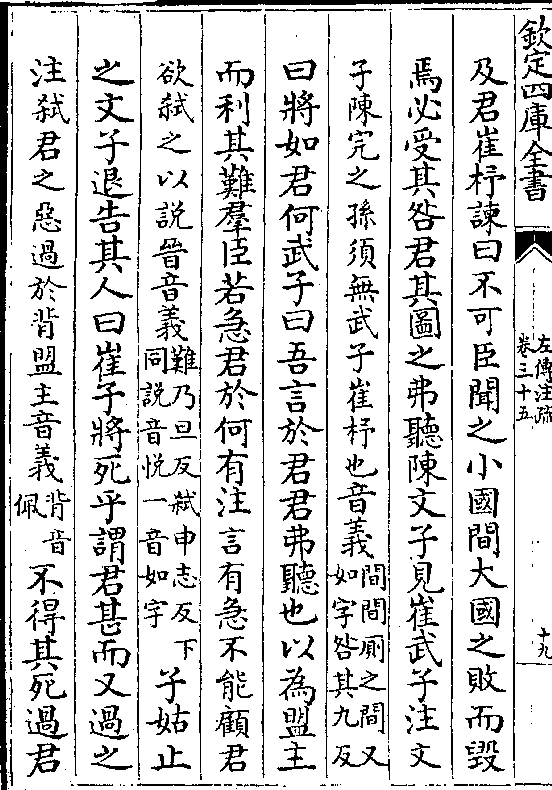 欽定四庫全書
左傳注疏
卷三十五
十九
及君崔杼諫曰不可臣聞之小國間大國之敗而毀
焉必受其咎君其圖之弗聽陳文子見崔武子注文
子陳完之孫須無武子崔杼也音義間間厠之間又如字咎其九反
曰將如君何武子曰吾言於君君弗聽也以為盟主
而利其難羣臣若急君於何有注言有急不能顧君
欲弑之以説晉音義難乃旦反弑申志反下同説音悦一音如字子姑止
之文子退告其人曰崔子將死乎謂君甚而又過之
注弑君之惡過於背盟主音義背音佩不得其死過君